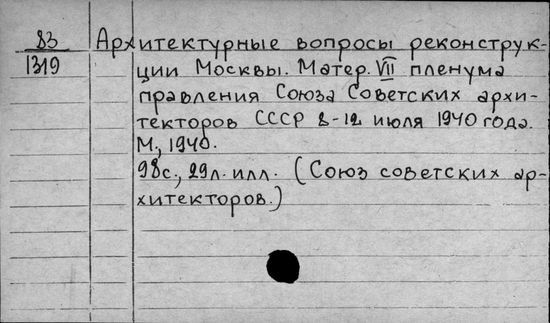 83 Архитектурные вопросы реконструк-
1319 ции Москвы. Матер. VII пленума
правления Союза Советских архи-
текторов СССР 8-12 июля 1940 года.
М., 1940.
98с., 29л. илл. (Союз советских ар-
хитекторов.)